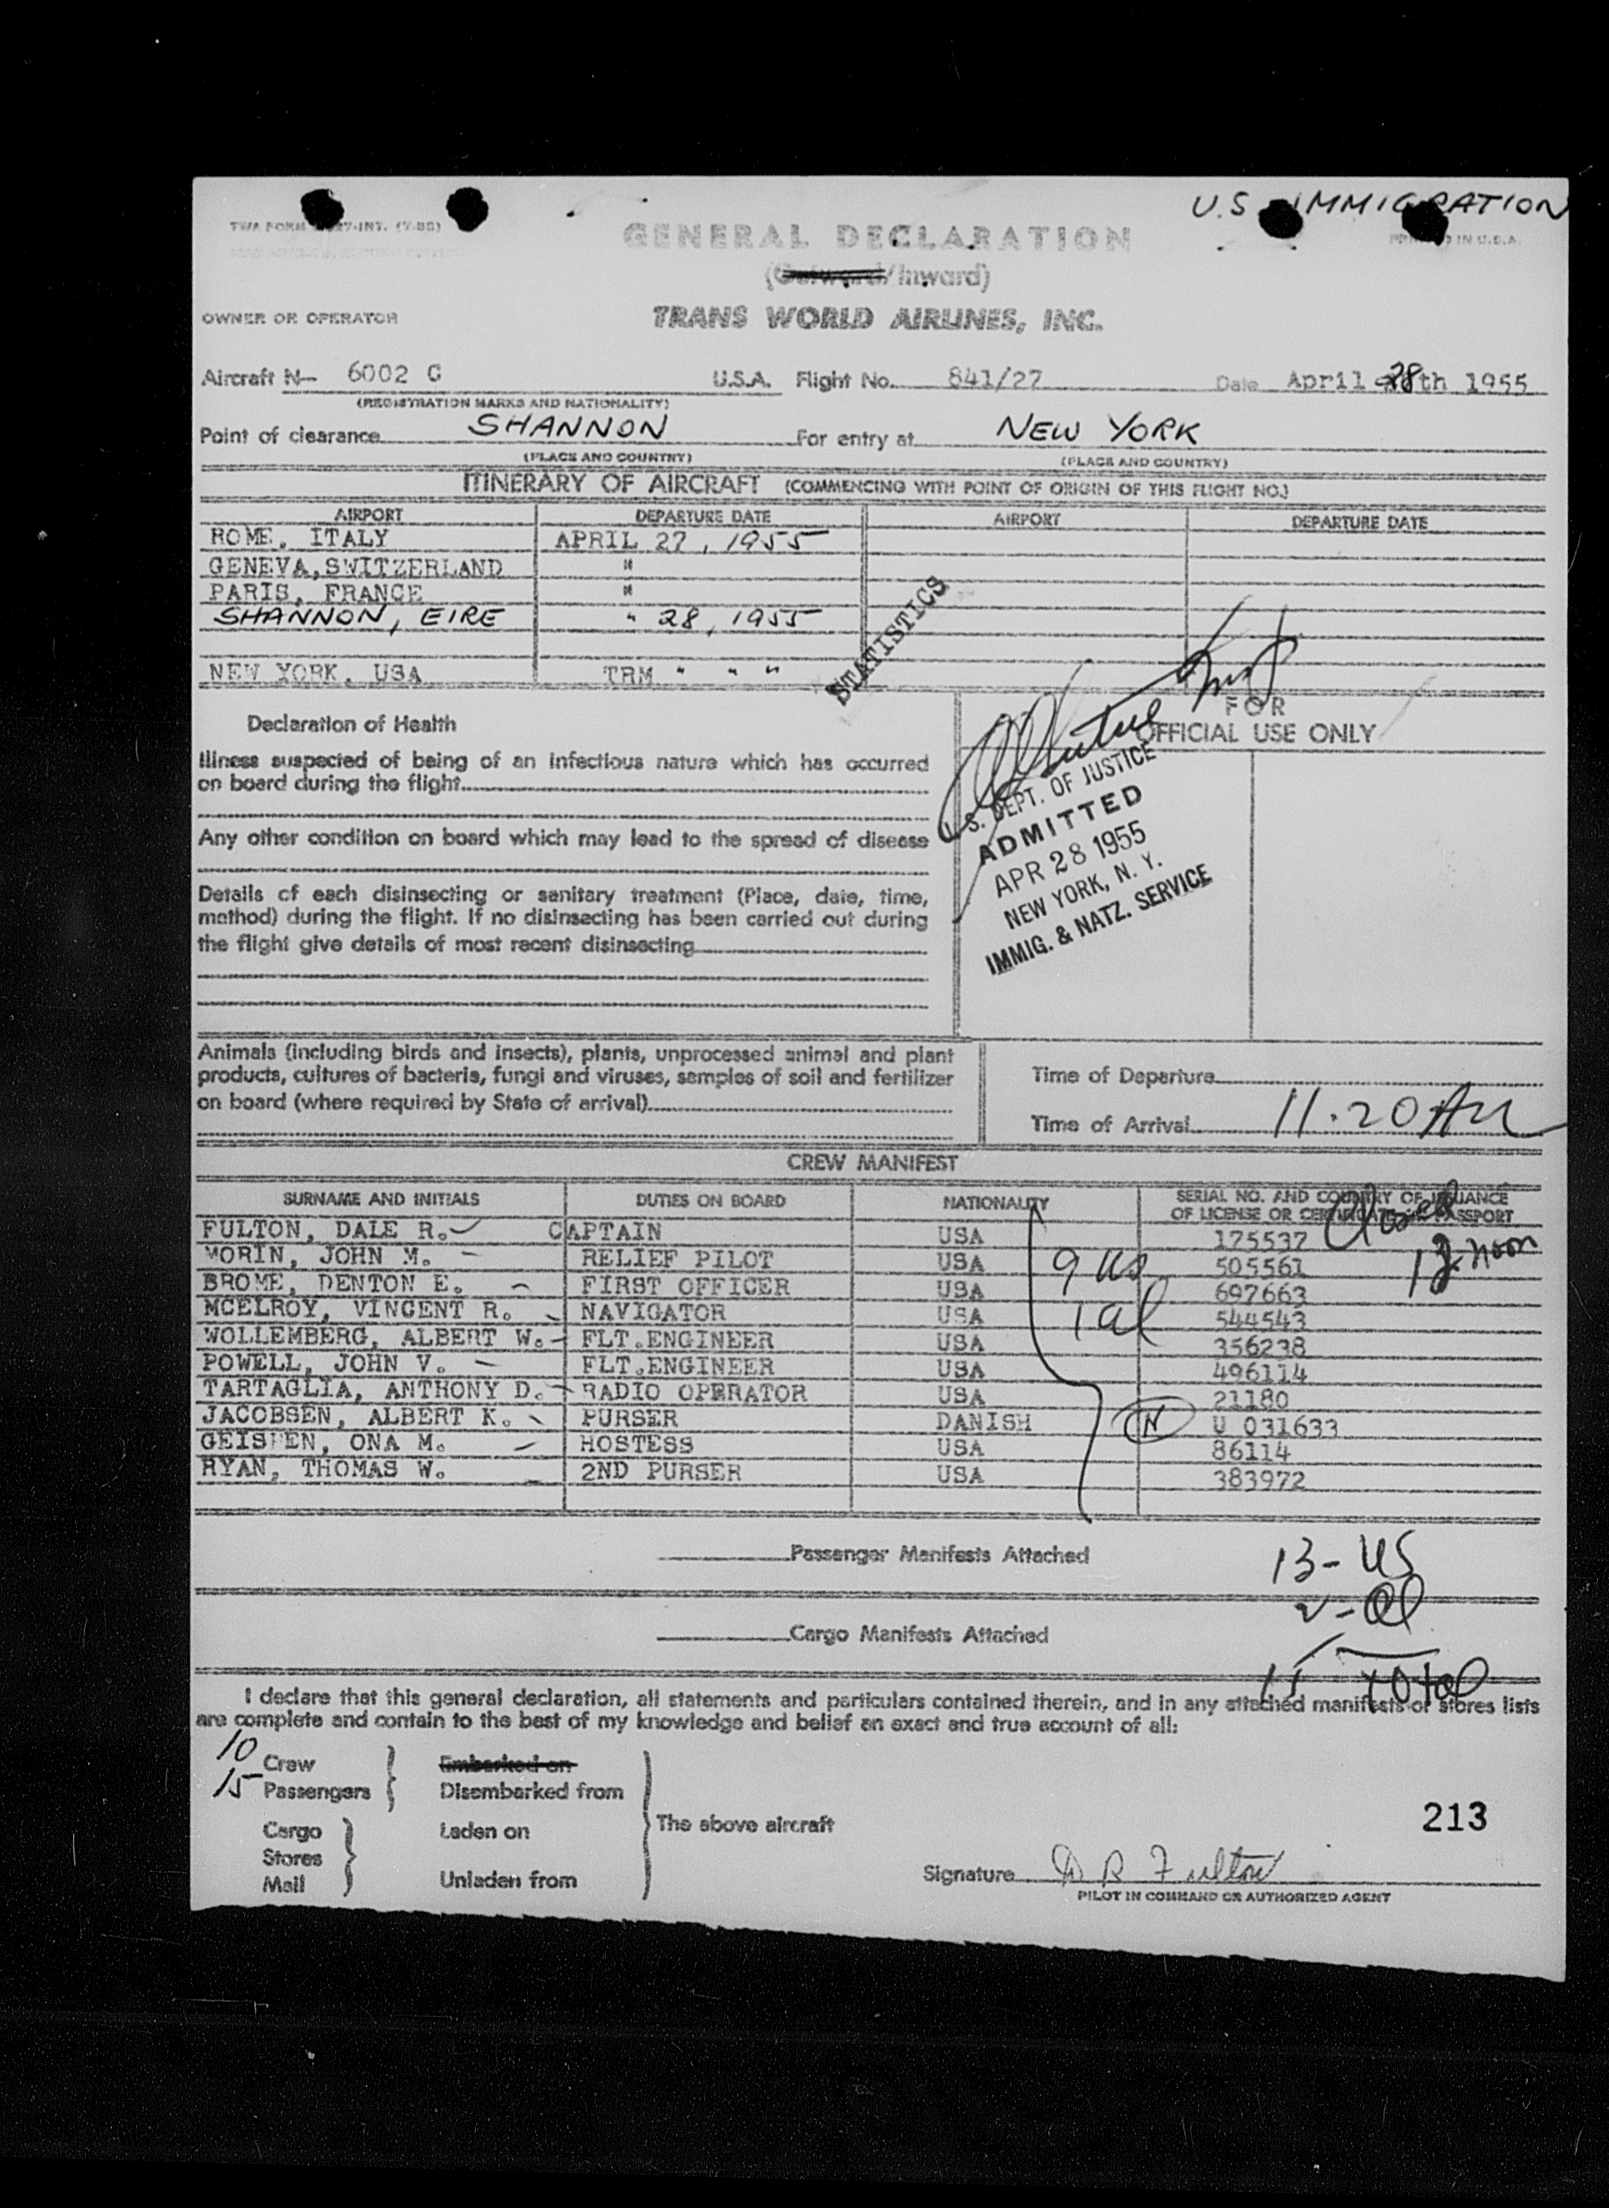 U.S. IMMIGRATION
TWA FORM
PRINTED IN U.S.A.
GENERAL DECLARATION
(Outward/Inward)
OWNER OR OPERATOR
TRANS WORLD AIRLINES, INC.
Aircraft N- 6002 C U.S.A. Flight No. 841/27 Date April 28th 1955
(REGISTRATION MARKS AND NATIONALITY)
Point of clearance SHANNON For entry at NEW YORK
(PLACE AND COUNTRY) (PLACE AND COUNTRY)
ITINERARY OF AIRCRAFT (COMMENCING WITH POINT OF ORIGIN OF THIS FLIGHT NO.)
AIRPORT DEPARTURE DATE AIRPORT DEPARTURE DATE
ROME, ITALY APRIL 27, 1955
GENEVA, SWITZERLAND "
PARIS, FRANCE "
SHANNON, EIRE " 28, 1955
NEW YORK, USA TRM " " "
STATISTICS
Declaration of Health
FOR
OFFICIAL USE ONLY
Illness suspected of being of an infectious nature which has occurred
on board during the flight
Any other condition on board which may lead to the spread of disease
Details of each disinsecting or sanitary treatment (Place, date, time,
method) during the flight. If no disinsecting has been carried out during
the flight give details of most recent disinsecting
U.S. DEPT. OF JUSTICE
ADMITTED
APR 28 1955
NEW YORK, N. Y.
IMMIG. & NATZ. SERVICE
Animals (including birds and insects), plants, unprocessed animal and plant
products, cultures of bacteria, fungi and viruses, samples of soil and fertilizer
on board (where required by State of arrival)
Time of Departure
Time of Arrival 11.20 AM
CREW MANIFEST
SURNAME AND INITIALS DUTIES ON BOARD NATIONALITY SERIAL NO. AND COUNTRY OF ISSUANCE
OF LICENSE OR CERTIFICATE OR PASSPORT
FULTON, DALE R. CAPTAIN USA 175537
MORIN, JOHN M. RELIEF PILOT USA 505561
BROME, DENTON E. FIRST OFFICER USA 697663
MCELROY, VINCENT R. NAVIGATOR USA 544543
WOLLEMBERG, ALBERT W. FLT.ENGINEER USA 356238
POWELL, JOHN V. FLT.ENGINEER USA 496114
TARTAGLIA, ANTHONY D. RADIO OPERATOR USA 21180
JACOBSEN, ALBERT K. PURSER DANISH N U 031633
ONA M. HOSTESS USA 86114
RYAN, THOMAS W. 2ND PURSER USA 383972
9 US
1 al
Closed
noon
Passenger Manifests Attached
13 - US
2 - al
15 Total
Cargo Manifests Attached
I declare that this general declaration, all statements and particulars contained therein, and in any attached manifests or stores lists
are complete and contain to the best of my knowledge and belief an exact and true account of all:
10 Crew Embarked on
15 Passengers Disembarked from
The above aircraft
Cargo Laden on
Stores
Mail Unladen from
213
Signature D R Fulton
PILOT IN COMMAND OR AUTHORIZED AGENT